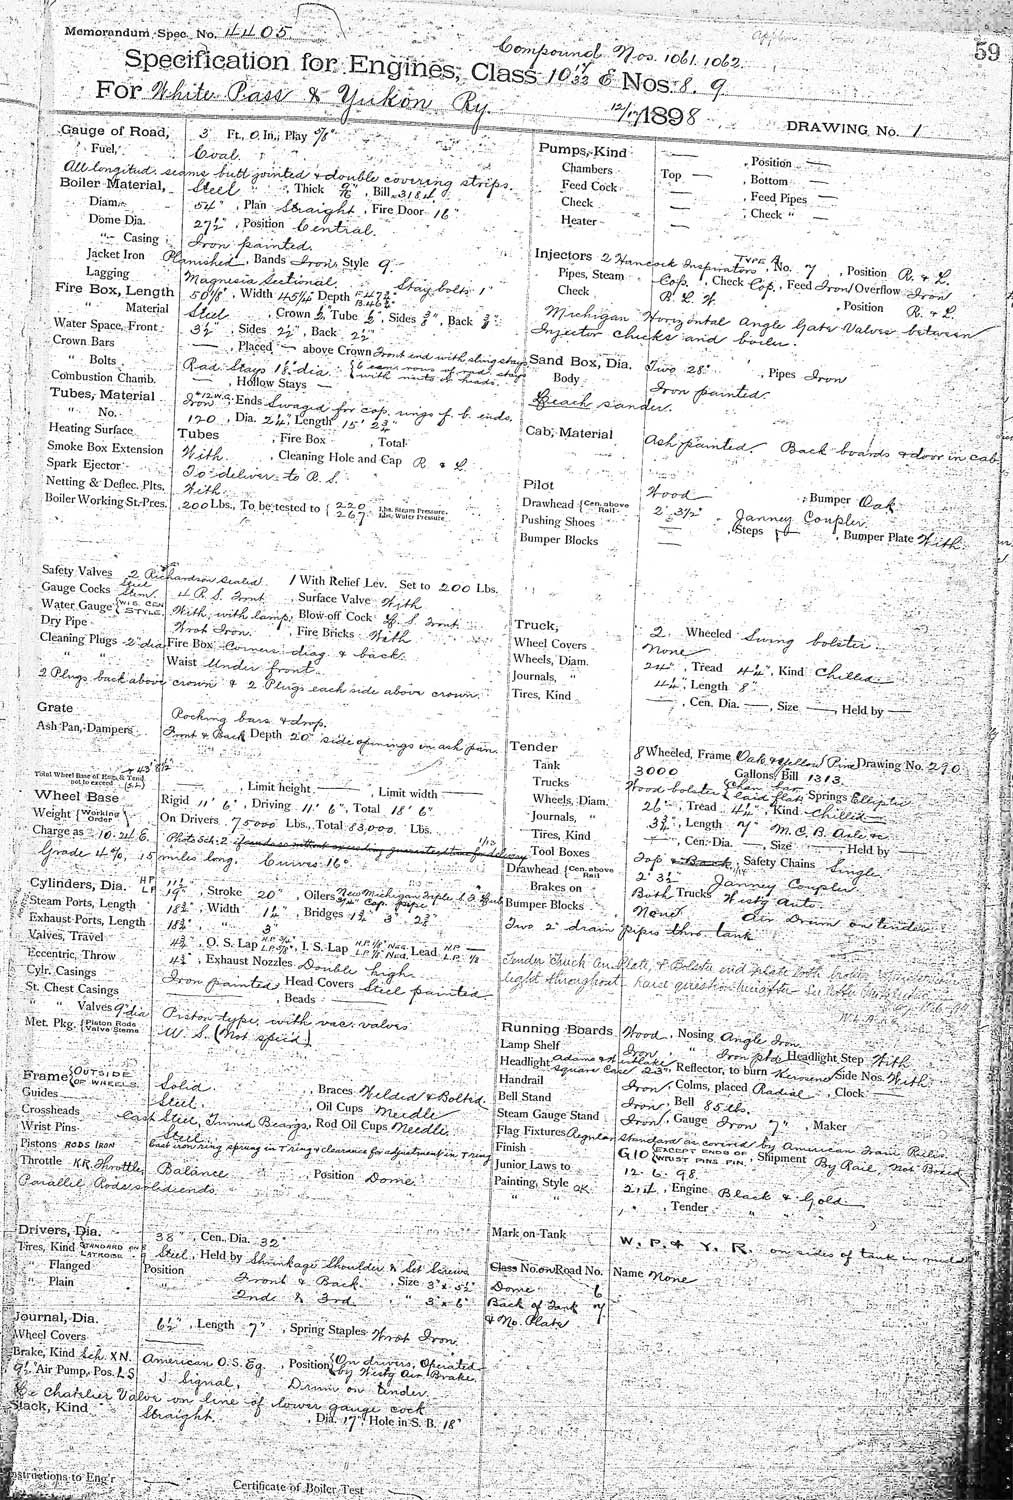 Memorandum Spec. No. 4405.
59
Compound Nos. 1061. 1062.
Specification for Engines, Class 10 17/32 E Nos. 8. 9
For White Pass & Yukon Ry. 12/ 1898 DRAWING No. 1
Gauge of Road, 3 Ft., 0 In.; Play
Fuel, Coal.
All longitud. seams butt jointed & double covering strips.
Boiler Material, Steel , Thick 9/16" , Bill 3184.
Diam. 54" , Plan Straight , Fire Door 16"
Dome Dia. 27½" , Position Central.
"- Casing Iron painted.
Jacket Iron Planished , Bands Iron , Style 9
Lagging Magnesia Sectional. Stay bolts 1"
Fire Box, Length 50 1/8" , Width Depth
" Material Steel , Crown , Tube ½" , Sides , Back
Water Space, Front 3½" , Sides 2½" , Back 2½"
Crown Bars — , Placed — above Crown Front end with sling stays
" Bolts Rad. Stays 1 1/8" dia. { 6 cent. rows of rad. stays with nuts & heads.
Combustion Chamb. — , Hollow Stays —
Tubes, Material Iron #12 W.G. , Ends Swaged for cop. rings f. b. ends.
" No. 120 , Dia. 2¼" , Length 15' 2¾"
Heating Surface Tubes , Fire Box , Total
Smoke Box Extension With. , Cleaning Hole and Cap R. & L.
Spark Ejector To deliver to R. S.
Netting & Deflec. Plts. With.
Boiler Working St. Pres. 200 Lbs., To be tested to { 220 Lbs. Steam Pressure. 267 Lbs. Water Pressure
Safety Valves 2 Richardson sealed. 1 With Relief Lev. Set to 200 Lbs.
Gauge Cocks Steel Stem. 4 R. S. Front , Surface Valve With
Water Gauge { W. & CEN STYLE. With, with lamp , Blow-off Cock S. Front
Dry Pipe Wrot Iron. , Fire Bricks With
Cleaning Plugs 2" dia Fire Box Corners diag & back.
" " Waist Under front.
2 Plugs back above crown & 2 Plugs each side above crown.
Grate Rocking bars & drop.
Ash Pan, Dampers Front & Back Depth 20" side openings in ash pan.
Total Wheel Base of Eng. & Tend. not to exceed 43' 8½"
— , Limit height — , Limit width —
Wheel Base Rigid 11' 6" , Driving 11' 6" , Total 18' 6"
Weight { Working Order On Drivers 75000 Lbs., Total 83,000. Lbs.
Charge as 10.24 E. Photo sch. 2
Grade 4%, 15 miles long. Curves 16°
Cylinders, Dia. H.P. 11½" L.P. 19" , Stroke 20" , Oilers New Michigan Triple S.F. Lub ¾" Cop. pipe
Steam Ports, Length 18¾" , Width 1¼" , Bridges
Exhaust Ports, Length 18¾" , " 3"
Valves, Travel 4¾" , O. S. Lap H.P. ¾" L.P. 5/8" , I. S. Lap H.P. Neg. L.P. Neg. , Lead H.P. — L.P. 1/8
Eccentric, Throw , Exhaust Nozzles Double high.
Cylr. Casings Iron painted , Head Covers Steel painted
St. Chest Casings — , Beads —
" " Valves 9" dia Piston type, with vac. valves
Met. Pkg. { Piston Rods Valve Stems U. S. (Not spec'd)
Frame { OUTSIDE OF WHEELS. Solid. , Braces Welded & Bolted
Guides Steel. , Oil Cups Needle
Crossheads Cast Steel, Tinned Bearg's, Rod Oil Cups Needle.
Wrist Pins Steel
Pistons RODS IRON Cast iron ring sprung in T ring & clearance for adjustment in T ring
Throttle K.R. Throttle Balance , Position Dome.
Parallel Rods solid ends
Drivers, Dia. 38" , Cen. Dia. 32"
Tires, Kind { STANDARD AND LATROBE Steel , Held by Shrinkage Shoulder & Set Screws
" Flanged Position Front & Back. , Size 3" x 5½"
" Plain " 2nd & 3rd. , " 3" x 6"
Journal, Dia. 6½" , Length 7" , Spring Staples Wrot Iron
Wheel Covers —
Brake, Kind Sch. XN. American O. S. Eq. , Position { On drivers, Operated by Westg Air Brake.
9½" Air Pump, Pos. L S. Signal. Drum on tender.
Le Chatelier Valve on line of lower gauge cock.
Stack, Kind Straight. , Dia. 17" , Hole in S. B. 18"
Instructions to Eng'r —
Certificate of Boiler Test
Pumps, Kind — , Position —
Chambers Top — , Bottom —
Feed Cock — , Feed Pipes —
Check — , Check " —
Heater —
Injectors 2 Hancock Inspirators TYPE A , No. 7 , Position R. & L.
Pipes, Steam Cop. , Check Cop. , Feed Iron Overflow Iron
Check R. L. W. , Position R. & L.
Michigan Horizontal Angle Gate Valves between
Injector checks and boiler.
Sand Box, Dia. Two 28" , Pipes Iron
Body Iron painted.
Leach sander.
Cab, Material Ash painted. Back boards & door in cab
Pilot Wood , Bumper Oak
Drawhead { Cen. above Rail 2' 3½" Janney Coupler.
Pushing Shoes — , Steps , Bumper Plate With.
Bumper Blocks —
Truck, 2 Wheeled Swing bolster.
Wheel Covers None
Wheels, Diam. 24" , Tread 4¼" , Kind Chilled
Journals, " 4¼" , Length 8"
Tires, Kind — , Cen. Dia. — , Size — , Held by —
Tender 8 Wheeled, Frame Oak & Yellow Pine Drawing No. 290
Tank 3000 Gallons, Bill 1313.
Trucks Wood bolster , Springs Elliptic
Wheels, Diam. 26" , Tread 4¼" , Kind Chilled
Journals, " 3¾" , Length 7" M. C. B. Axle &c
Tires, Kind — , Cen. Dia. — , Size — , Held by —
Tool Boxes Top & Back , Safety Chains Single
Drawhead { Cen. above Rail 2' 3½" Janney Coupler
Brakes on Both Trucks Westg Auto.
Bumper Blocks None Air Drum on tender
Two 2" drain pipes thro. tank
Running Boards Wood , Nosing Angle Iron.
Lamp Shelf Iron. " Iron ptd. Headlight Step With
Headlight Adams & Westlake square case 23" , Reflector, to burn Kerosene Side Nos. With
Handrail Iron , Colms, placed Radial , Clock —
Bell Stand Iron , Bell 85 lbs.
Steam Gauge Stand Iron , Gauge Iron 7" , Maker
Flag Fixtures Regular standard as covered by American Train Rules
Finish G10 { EXCEPT ENDS OF WRIST PINS PIN. , Shipment By Rail, Not Boxed
Junior Laws to 12. 6. 98.
Painting, Style OK 214 , Engine Black & Gold
" " , Tender " "
Mark on Tank W. P. & Y. R. on sides of tank in middle
Class No. on Road No. Name None
Dome 6
Back of Tank 7
& No. Plate